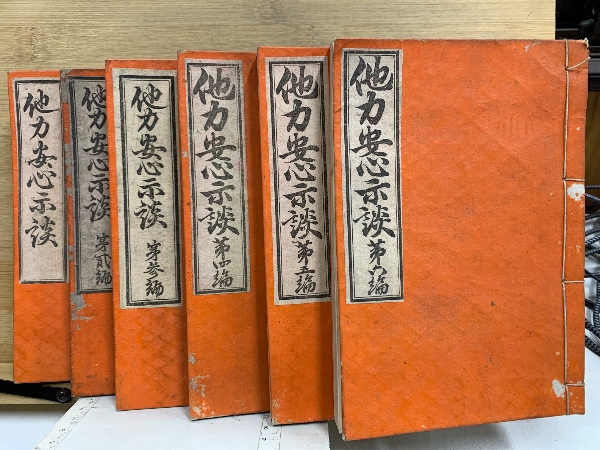 他力安心示談
他力安心示談 第貮編
他力安心示談 第参編
他力安心示談 第四編
他力安心示談 第五編
他力安心示談 第六編